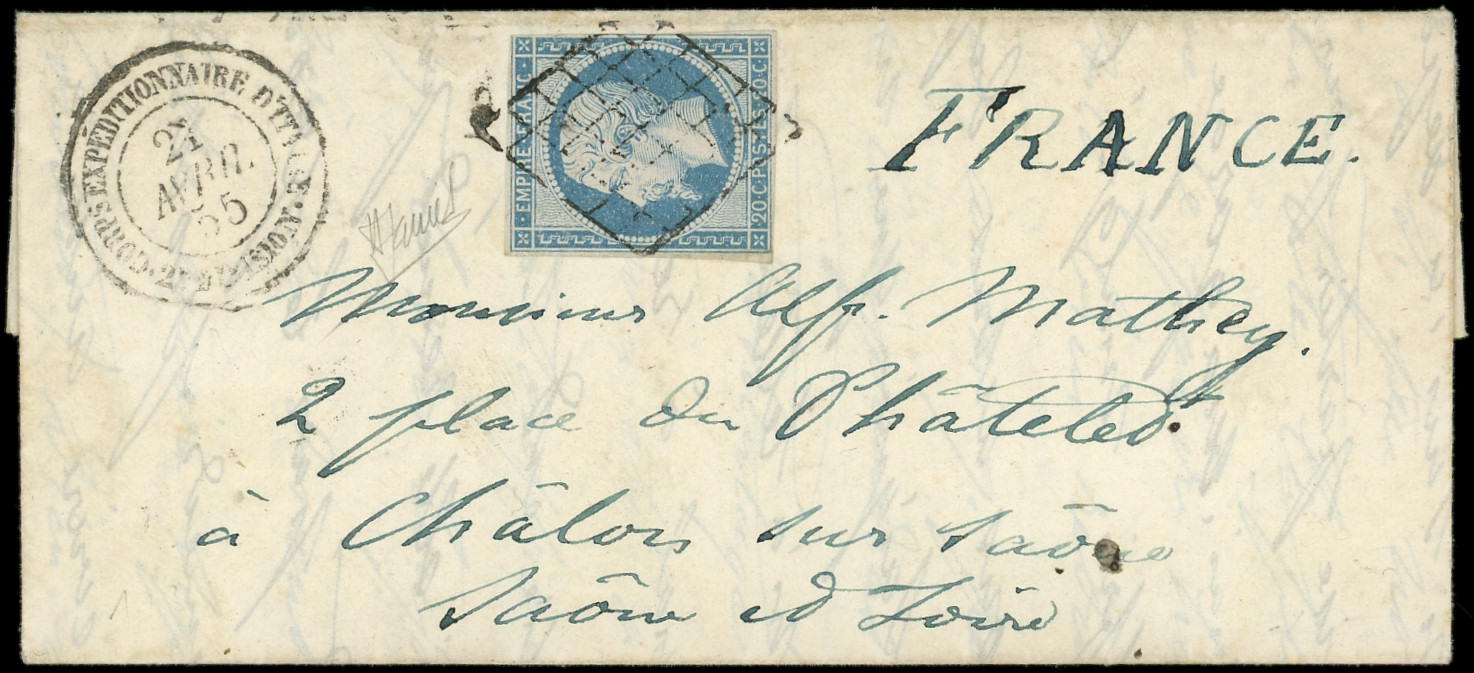 CORPS EXPÉDITIONNAIRE D'ITALIE
2E DIVISION
AVRIL
55
EMPIRE FRANC
20·C·POSTES·20·C
FRANCE.
Monsieur Alf. Mathey.
2 place du Châtelet
à Châlon sur Saône
Saône et Loire